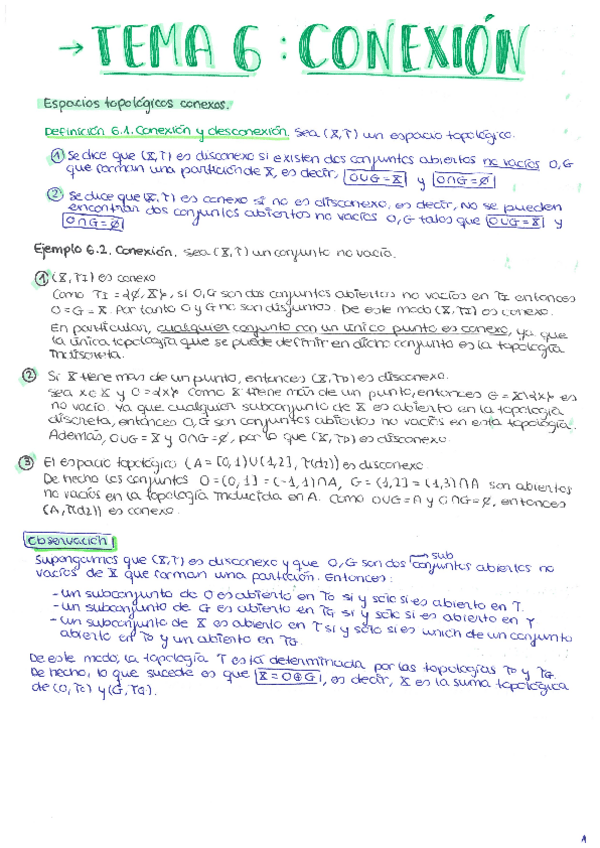 → TEMA 6 : CONEXIÓN
Espacios topológicos conexos.
Definición 6.1. Conexión y desconexión. Sea (X,T) un espacio topológico.
① Se dice que (X,T) es disconexo si existen dos conjuntos abiertos no vacíos O,G
que forman una partición de X, es decir, O∪G = X y O∩G = ∅
② Se dice que (X,T) es conexo si no es disconexo, es decir, no se pueden
encontrar dos conjuntos abiertos no vacíos O,G tales que O∪G = X y
O∩G = ∅
Ejemplo 6.2. Conexión. Sea (X,T) un conjunto no vacío.
① (X,TI) es conexo
Como TI = {∅, X}, si O,G son dos conjuntos abiertos no vacíos en TI entonces
O = G = X. Por tanto O y G no son disjuntos. De este modo (X,TI) es conexo.
En particular, cualquier conjunto con un único punto es conexo, ya que
la única topología que se puede definir en dicho conjunto es la topología
indiscreta.
② Si X tiene más de un punto, entonces (X,TD) es disconexo.
Sea x∈X y O={x}. Como X tiene más de un punto, entonces G = X\{x} es
no vacío. Ya que cualquier subconjunto de X es abierto en la topología
discreta, entonces O,G son conjuntos abiertos no vacíos en esta topología.
Además, O∪G = X y O∩G = ∅, por lo que (X,TD) es disconexo.
③ El espacio topológico (A = [0,1)∪(1,2], T(d2)) es disconexo.
De hecho los conjuntos O = (0,1] = (-1,1)∩A, G = (1,2] = (1,3)∩A son abiertos
no vacíos en la topología inducida en A. Como O∪G = A y O∩G = ∅, entonces
(A,T(d2)) es conexo.
Observación |
Supongamos que (X,T) es disconexo y que O,G son dos sub conjuntos abiertos no
vacíos de X que forman una partición. Entonces:
- un subconjunto de O es abierto en TO si y sólo si es abierto en T.
- un subconjunto de G es abierto en TG si y sólo si es abierto en T
- un subconjunto de X es abierto en T si y sólo si es unión de un conjunto
abierto en TO y un abierto en TG.
De este modo, la topología T está determinada por las topologías TO y TG.
De hecho, lo que sucede es que X = O⊕G, es decir, X es la suma topológica
de (O,TO) y (G,TG).
1